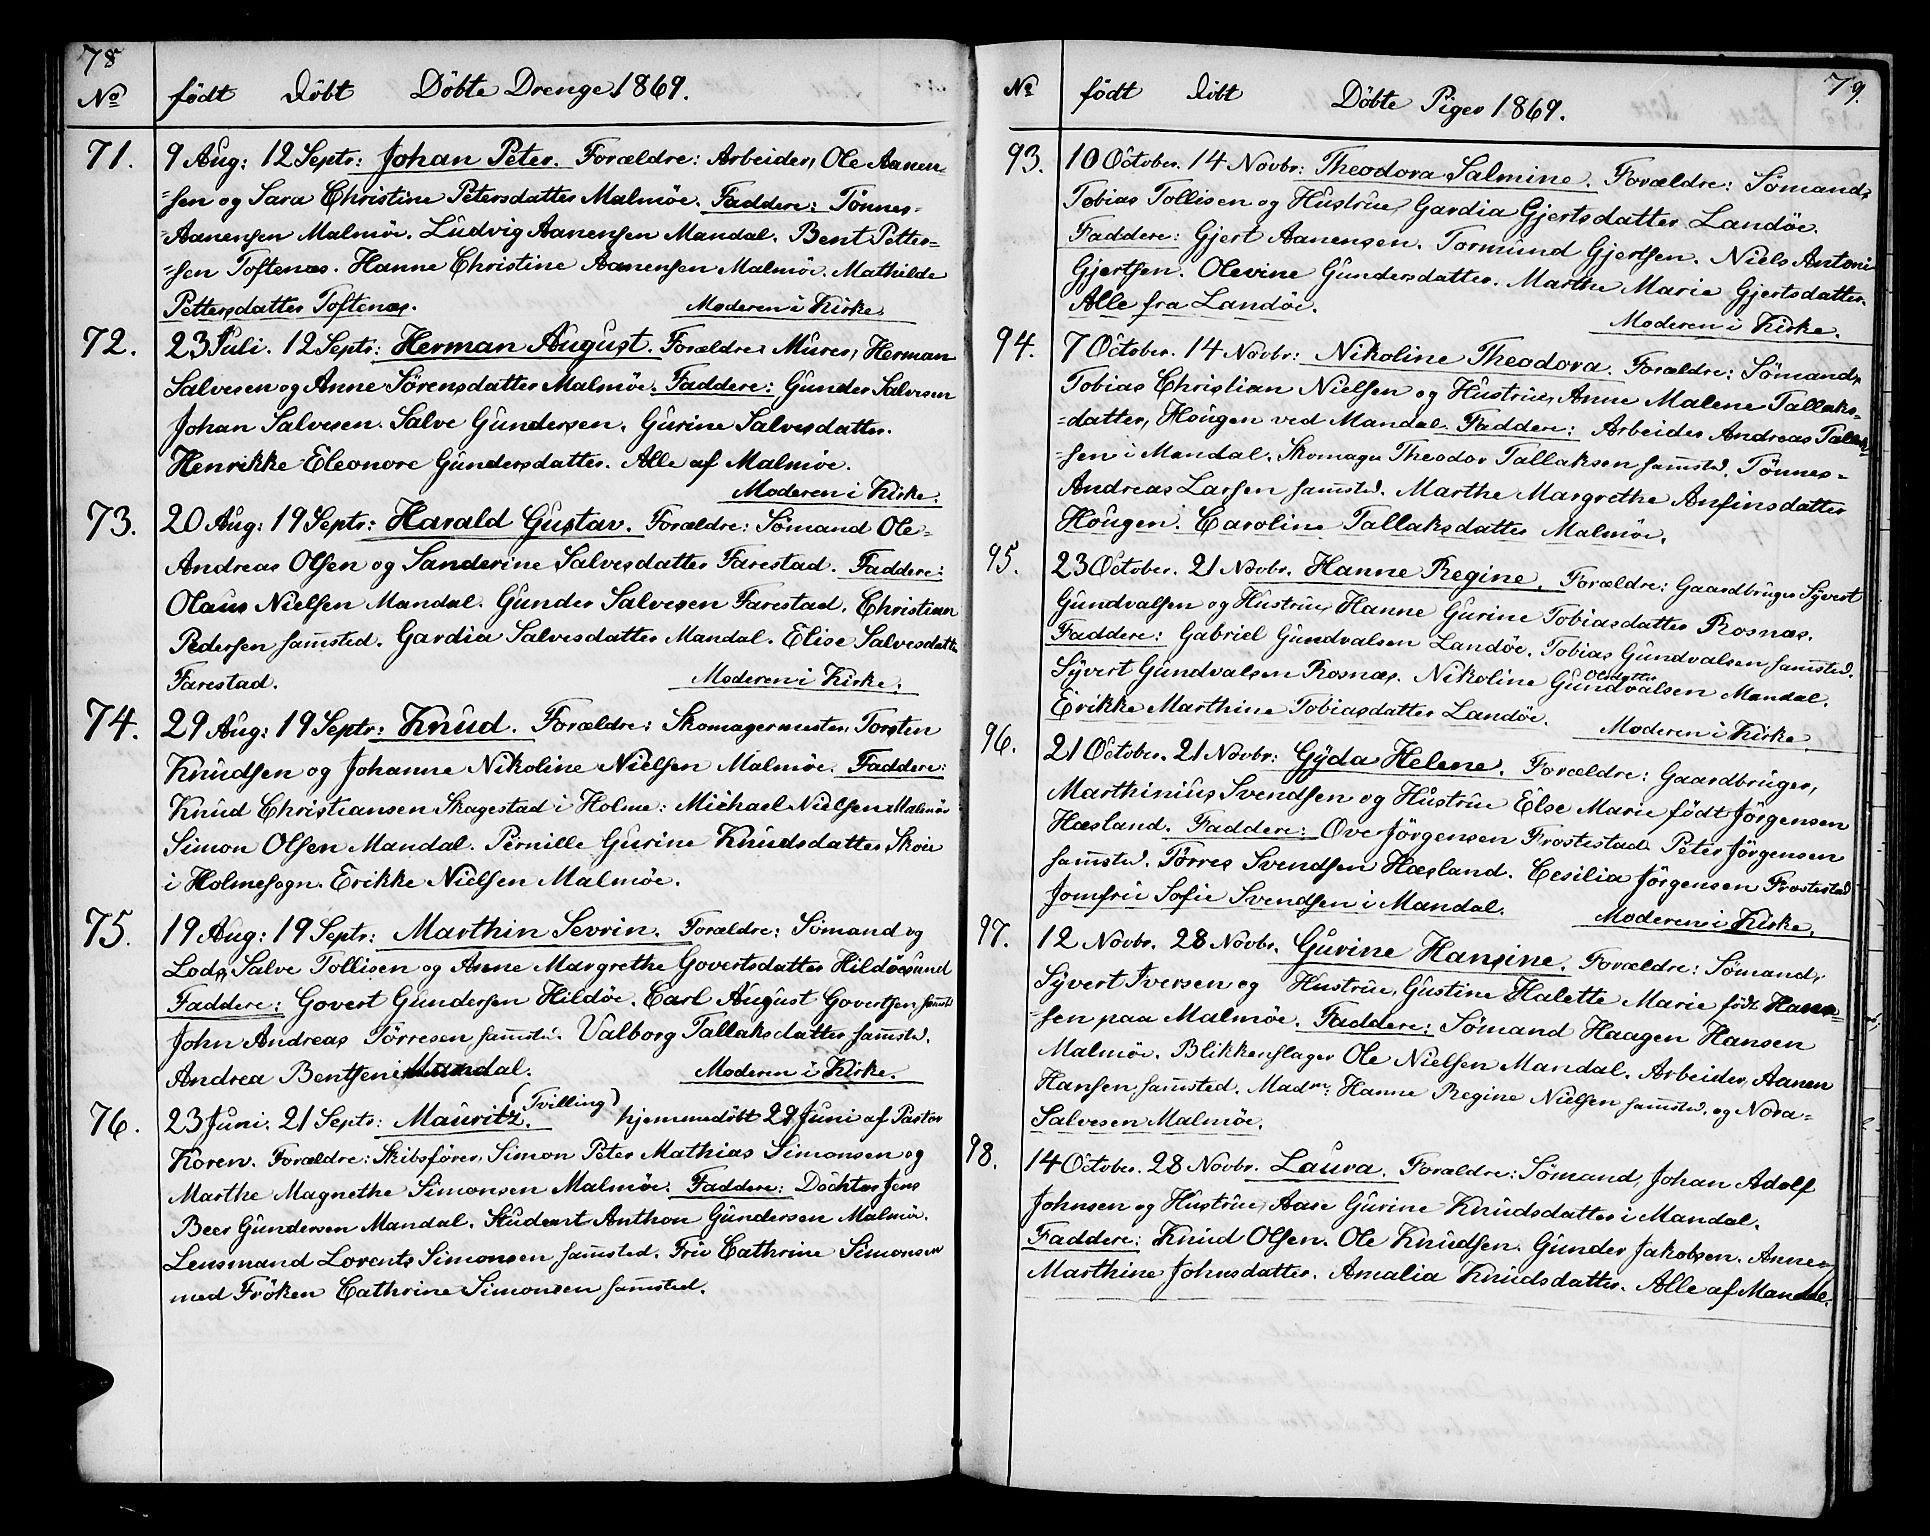 78
No födt Döbt Döbte Drenge 1869.
71. 9 Aug: 12 Septr: Johan Peter. Forældre: Arbeider, Ole Aanen-
-sen og Sara Christine Petersdatter Malmöe. Faddere: Tönnes-
-Aanensen Malmöe. Ludvig Aanensen Mandal. Bent Petter-
-sen Toftenæs. Hanne Christine Aanensen Malmöe. Mathilde
Pettersdatter Toftenæs. Moderen i Kirke.
72. 23 Juli. 12 Septr: Herman August. Forældre: Murer, Herman
Salvesen og Anne Sörensdatter Malmöe. Faddere: Gunder Salvesen
Johan Salvesen. Salve Gundersen. Gurine Salvesdatter.
Henrikke Eleonore Gundersdatter. Alle af Malmöe.
Moderen i Kirke.
73. 20 Aug: 19 Septr: Harald Gustav. Forældre: Sömand Ole-
Andreas Olsen og Sanderine Salvesdatter Farestad. Faddere:
Olaus Nielsen Mandal. Gunder Salvesen Farestad. Christian
Pedersen samsted. Gardia Salvesdatter Mandal. Elise Salvesdatte
Farestad. Moderen i Kirke.
74. 29 Aug: 19 Septr: Knud. Forældre: Skomagermester, Torsten
Knudsen og Johanne Nikoline Nielsen Malmöe. Faddere:
Knud Christiansen Skagestad i Holme: Michael Nielsen Malmöe
Simon Olsen Mandal. Pernille Gurine Knudsdatter Skoie
i Holmesogn. Erikke Nielsen Malmöe.
75. 19 Aug: 19 Septr: Marthin Sevrin. Forældre: Sömand og
Lods, Salve Tollisen og Anne Margrethe Govertsdatter Hildöesund
Faddere: Govert Gundersen Hildöe. Carl August Govertsen samst
John Andreas Törresen samsted. Valborg Tallaksdatter samsted.
Andrea Bentsen i Mandal. Moderen i Kirke.
76. 23 Juni. 21 Septr: Mauritz. (Tvilling) hjemmedöbt 29 Juni af Pastor
Koren. Forældre: Skibsförer, Simon Peter Mathias Simonsen og
Marthe Magnethe Simonsen Malmöe. Faddere: Dochter Jens
Beer Gundersen Mandal. Student Anthon Gundersen Malmöe.
Lensmand Lorents Simonsen samsted. Fru Cathrine Simonsen
med Fröken Cathrine Simonsen samsted.
79.
No födt döbt Döbte Piger 1869.
93. 10 October. 14 Novbr: Theodora Salmine. Forældre: Sömand,
Tobias Tollisen og Hustrue, Gardia Gjertsdatter Landöe.
Faddere: Gjert Aanensen. Tormund Gjertsen. Niels Antoni
Gjertsen. Olevine Gundersdatter. Marthe Marie Gjertsdatter.
Alle fra Landöe.
Moderen i Kirke.
94. 7 October. 14 Novbr: Nikoline Theodora. Forældre: Sömand,
Tobias Christian Nielsen og Hustrue, Anne Malene Tallaks-
-datter, Hougen ved Mandal. Faddere: Arbeider Andreas Tallak-
-sen i Mandal. Skomager Theodor Tallaksen samsted. Tönnes-
Andreas Larsen samsted. Marthe Margrethe Anfinsdatter
Hougen. Caroline Tallaksdatter Malmöe.
95. 23 October. 21 Novbr. Hanne Regine. Forældre: Gaardbruger Syvert
Gundvalsen og Hustrue, Hanne Gurine Tobiasdatter Rosnæs.
Faddere: Gabriel Gundvalsen Landöe. Tobias Gundvalsen samsted.
Syvert Gundvalsen Rosnæs. Nikoline Gundvalsen Olsdatter Mandal.
Erikke Marthine Tobiasdatter Landöe. Moderen i Kirke.
96. 21 October. 21 Novbr: Gyda Helene. Forældre: Gaardbruger,
Marthinius Svendsen og Hustrue Else Marie födt Jörgensen
Hæsland. Faddere: Ove Jörgensen Frostestad. Peter Jörgensen
samsted. Törres Svendsen Hæsland. Cesilia Jörgensen Frostestad
Jomfru Sofie Svendsen i Mandal. Moderen i Kirke.
97. 12 Novbr. 28 Novbr. Gurine Hansine. Forældre: Sömand,
Syvert Iversen og Hustrue, Gustine Halette Marie födt Han-
-sen paa Malmöe. Faddere: Sömand Haagen Hansen
Malmöe. Blikkenslager Ole Nielsen Mandal. Arbeider, Aanen
Hansen samsted. Madm: Hanne Regine Nielsen samsted. og Nora-
Salvesen Malmöe.
98. 14 October. 28 Novbr. Laura. Forældre: Sömand, Johan Adolf
Johnsen og Hustrue, Aase Gurine Knudsdatter i Mandal.
Faddere: Knud Olsen. Ole Knudsen. Gunder Jakobsen. Anne-
Marthine Johnsdatter. Amalia Knudsdatter. Alle af Mandal.